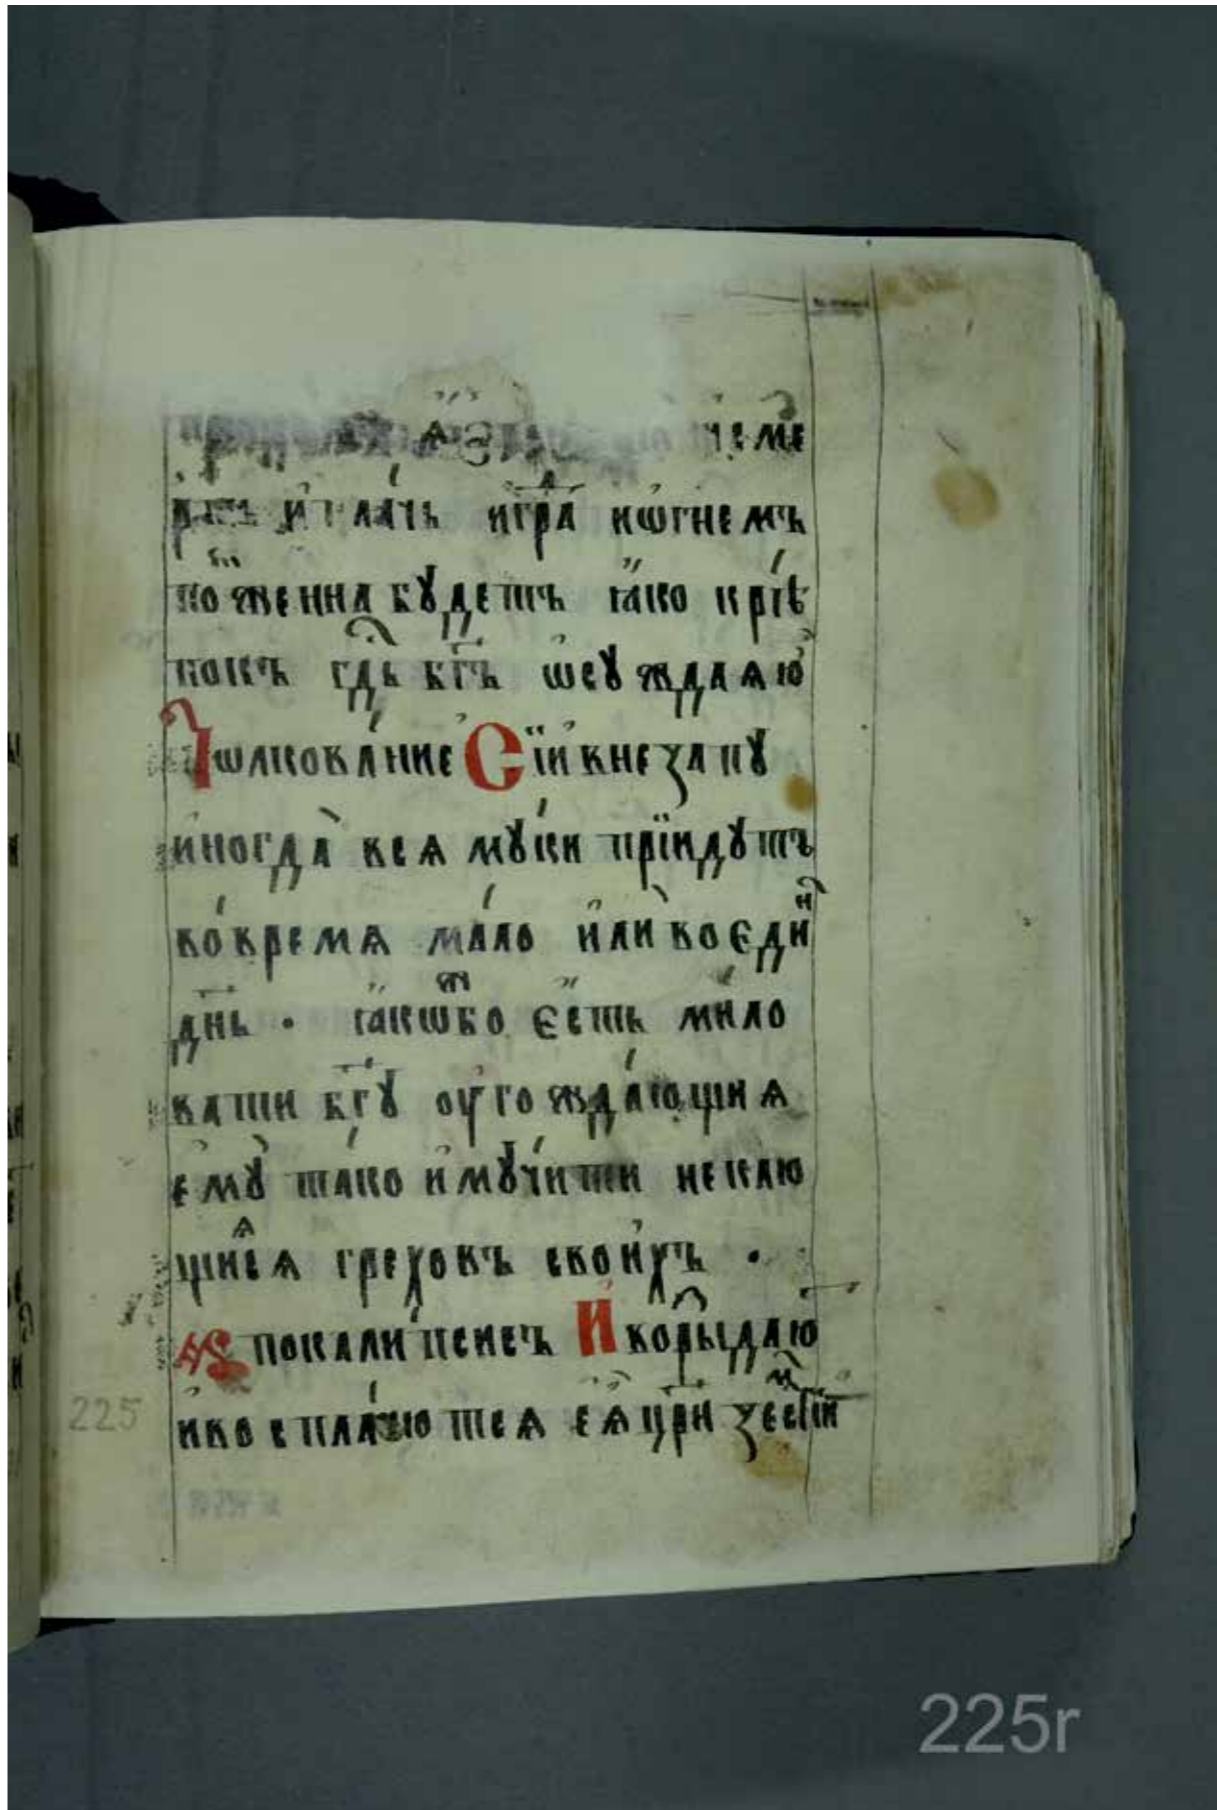 и сме
рть и плачь и гра и ѡгнемъ
пожженна бꙋдетъ ꙗко крѣ
покъ гдь бгъ ѡсꙋждаѧю
Толкование Сїи внезапꙋ
иногда всѧ мꙋки прїидꙋтъ
во времѧ мало или во єдин
днь · ꙗкѡже бо єсть мило
вати бгꙋ оугождающиѧ
емꙋ тако и мꙋчити не каю
щиесѧ греховъ своихъ ·
Апокалипсисъ И возрыдаю
и восплачютсѧ еѧ цри земстїи
225
225r